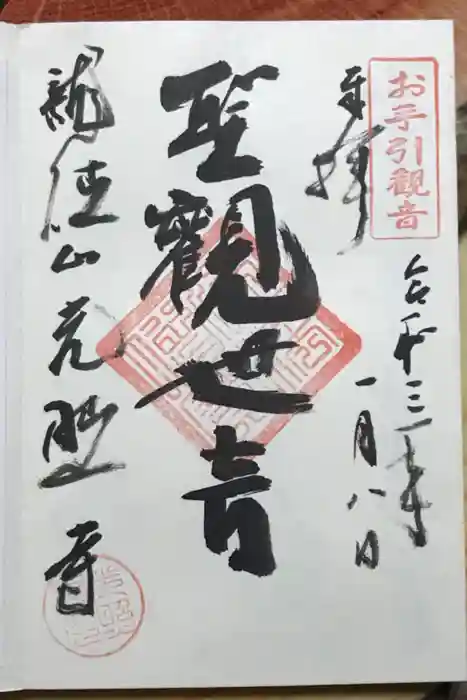 お手引観音
奉拝
令和三年
一月八日
聖観世音
龍徳山光照寺